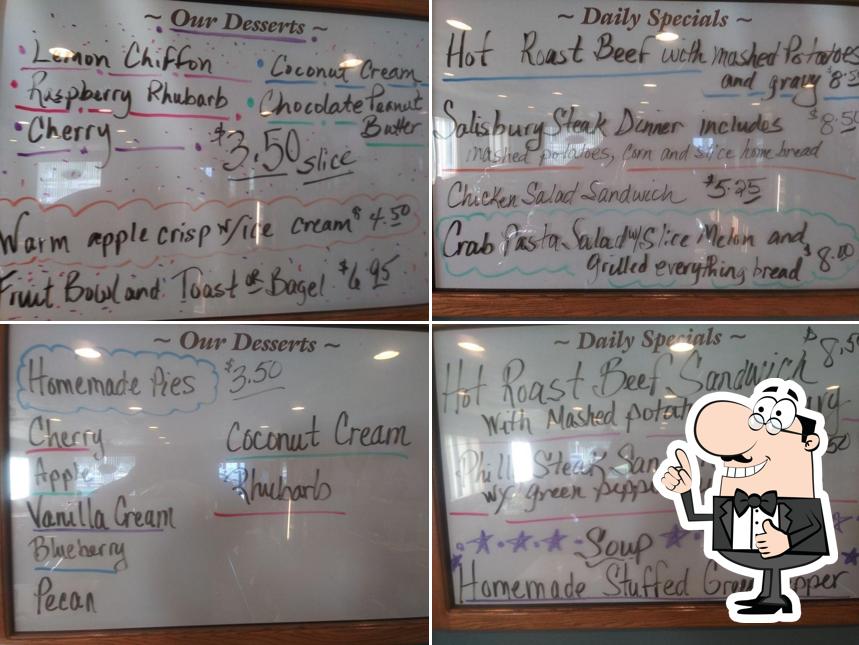 ~ Our Desserts ~
Lemon Chiffon
Raspberry Rhubarb
Cherry
Coconut Cream
Chocolate Peanut
Butter
$3.50 slice
Warm apple crisp w/ice cream $4.50
Fruit Bowl and Toast or Bagel $6.95
~ Daily Specials ~
Hot Roast Beef with mashed Potatoes
and gravy
Salisbury Steak Dinner includes $8.50
mashed potatoes, corn and slice home bread
Chicken Salad Sandwich $5.25
Crab Pasta Salad w/Slice Melon and
grilled everything bread $8.00
~ Our Desserts ~
Homemade Pies $3.50
Cherry
Apple
Vanilla Cream
Blueberry
Pecan
Coconut Cream
Rhubarb
~ Daily Specials ~
Hot Roast Beef Sandwich
With Mashed
Steak
w/ green
Soup
Homemade Stuffed